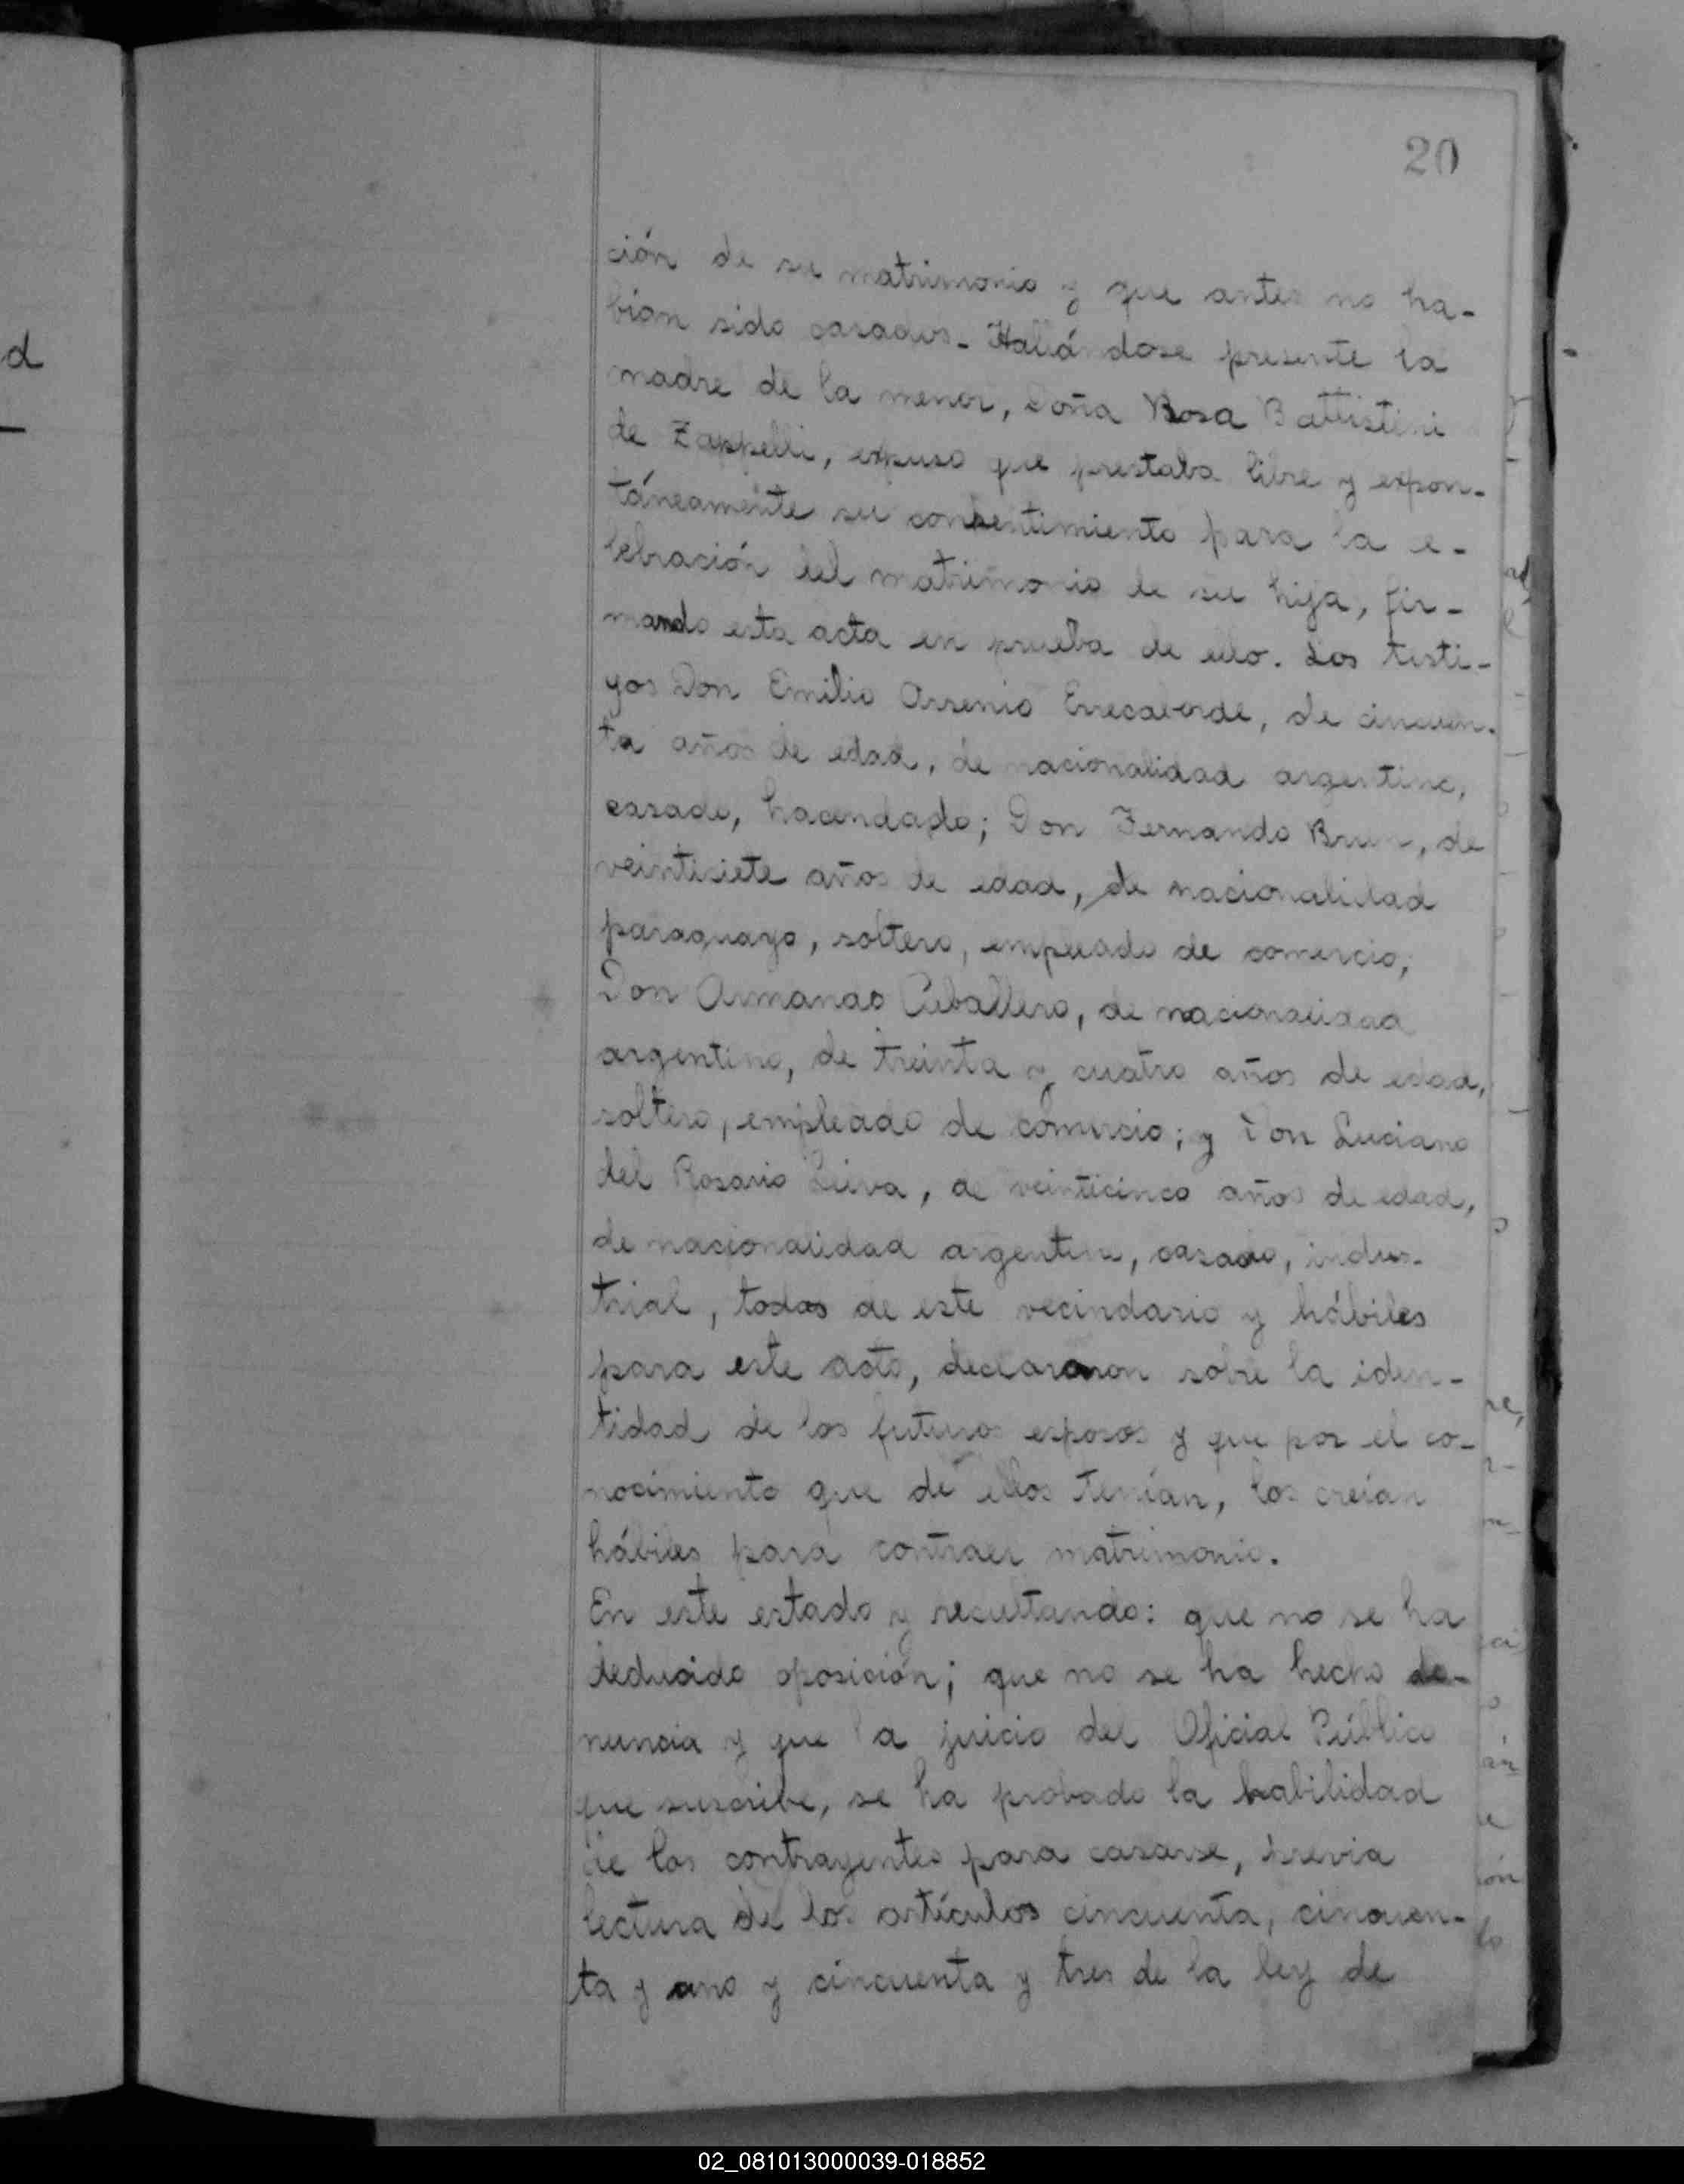 20
d
ción de su matrimonio y que antes no ha-
bían sido casados.- Hallándose presente la
madre de la menor, Doña Rosa Battistini
de Zappelli, expuso que prestaba libre y expon-
táneamente su consentimiento para la ce-
lebración del matrimonio de su hija, fir-
mando esta acta en prueba de ello. Los testi-
gos Don Emilio Arsenio Errecaborde, de cincuen-
ta años de edad, de nacionalidad argentino,
casado, hacendado; Don Fernando Brun, de
veintisiete años de edad, de nacionalidad
paraguayo, soltero, empleado de comercio;
Don Armando Ceballero, de nacionalidad
argentino, de treinta y cuatro años de edad,
soltero, empleado de comercio; y Don Luciano
del Rosario Leiva, de veinticinco años de edad,
de nacionalidad argentino, casado, indus-
trial, todos de este vecindario y hábiles
para este acto, declararon sobre la iden-
tidad de los futuros esposos y que por el co-
nocimiento que de ellos tenían, los creían
hábiles para contraer matrimonio.
En este estado y resultando: que no se ha
deducido oposición; que no se ha hecho de-
nuncia y que a juicio del Oficial Público
que suscribe, se ha probado la habilidad
de los contrayentes para casarse, previa
lectura de los artículos cincuenta, cincuen-
ta y uno y cincuenta y tres de la ley de
02_081013000039-018852